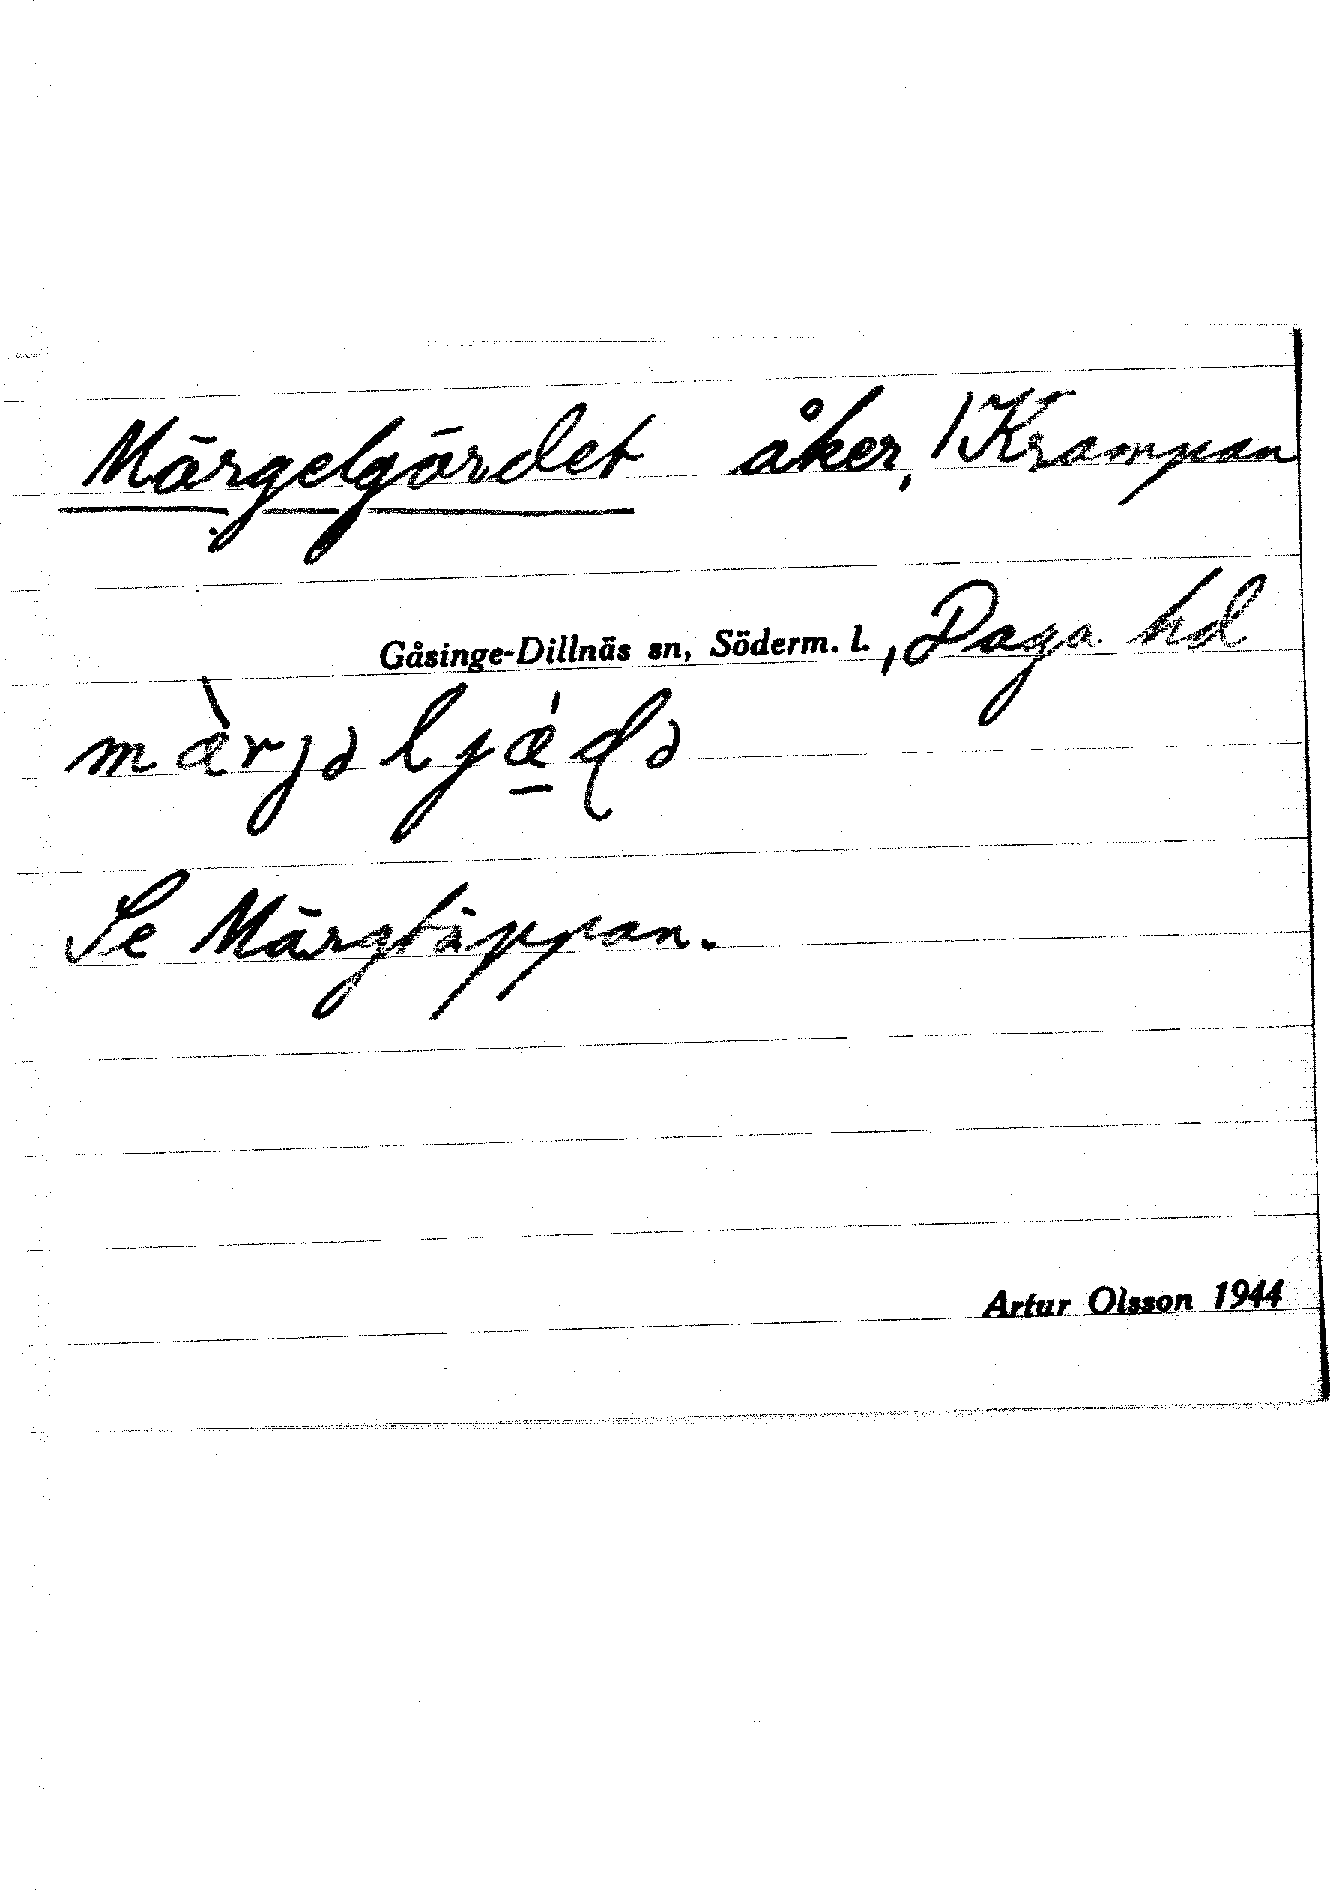 Märgelgärdet åker, 1 Krampan
Gåsinge-Dillnäs sn, Söderm. l., Daga hd
mæ̀rjəljǽ̲ɖə
Se Märgtäppan.
Artur Olsson 1944